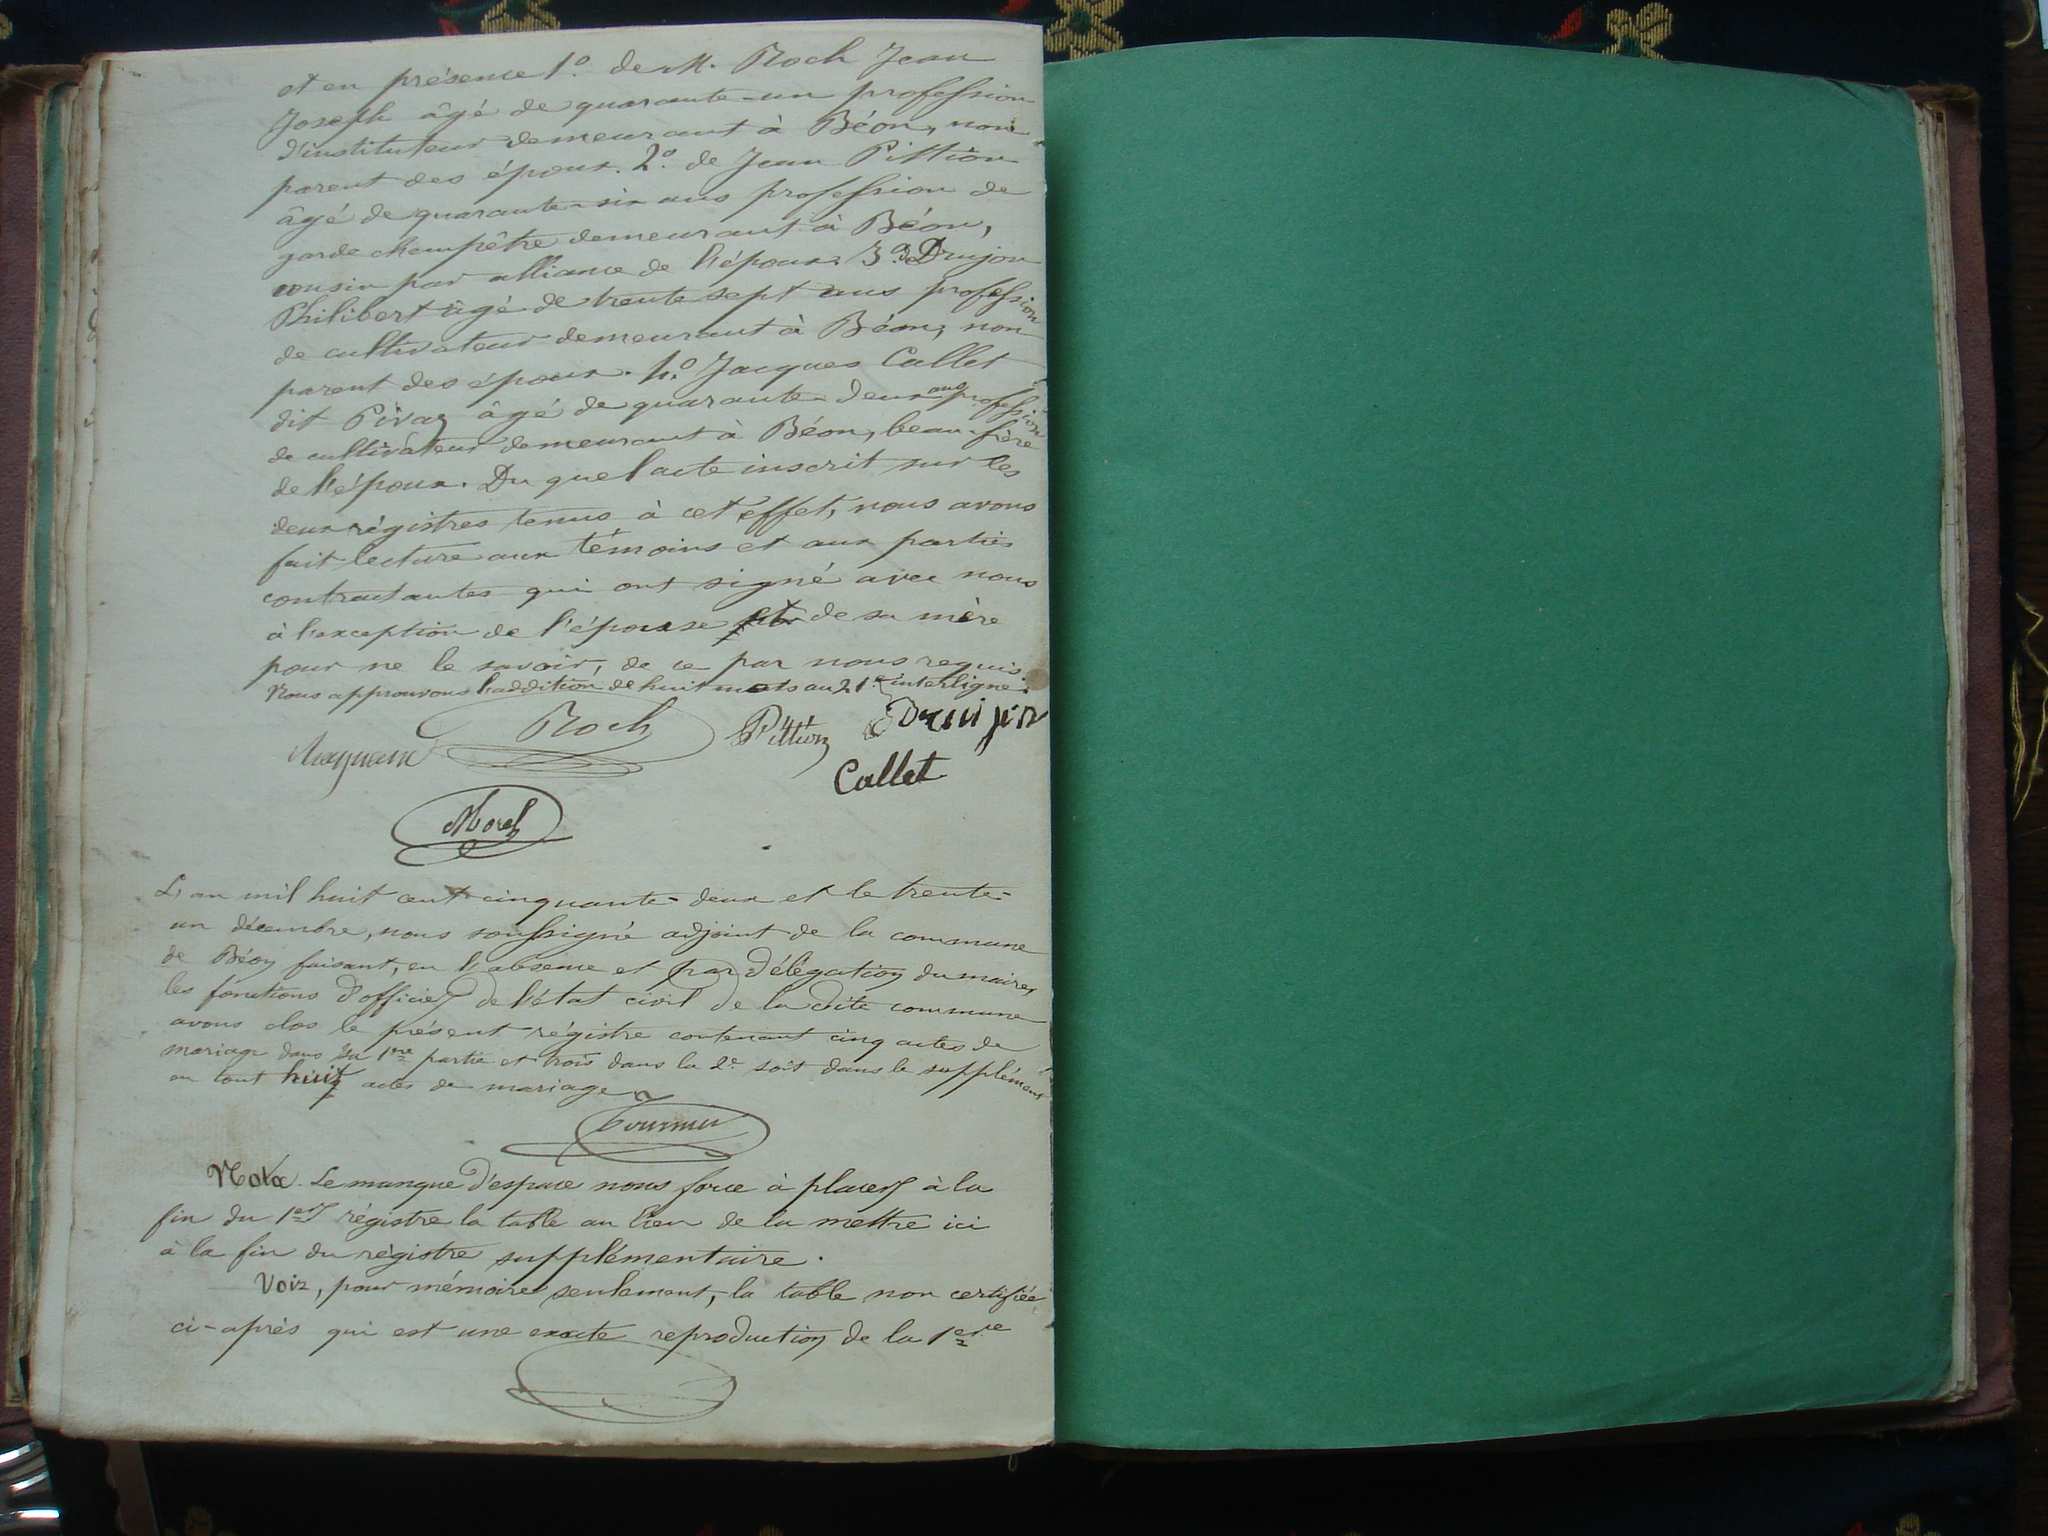 et en présence 1º. de M. Roch Jean
Joseph âgé de quarante-un profession
d'instituteur demeurant à Béon, non
parent des époux. 2º. de Jean Pittion
âgé de quarante-six ans profession de
garde champêtre demeurant à Béon,
cousin par alliance de l'époux. 3º. de Drujon
Philibert âgé de trente sept ans profession
de cultivateur demeurant à Béon, non
parent des époux. 4º. Jacques Callet
dit Pivaz âgé de quarante-deux ans profession
de cultivateur demeurant à Béon, beau-frère
de l'époux. Du quel acte inscrit sur les
deux régistres tenus à cet effet, nous avons
fait lecture aux témoins et aux parties
contractantes qui ont signé avec nous
à l'exception de l'épouse et de sa mère
pour ne le savoir, de ce par nous requis.
Nous approuvons l'addition de huit mots au 21e interligne.
Roch Pittion Drujon
Callet
Morel
L'an mil huit cent cinquante-deux et le trente-
un décembre, nous soussigné adjoint de la commune
de Béon faisant, en l'absence et par délégation du maire,
les fonctions d'officier de l'état civil de la dite commune
avons clos le présent régistre contenant cinq actes de
mariage dans sa 1ere partie et trois dans la 2e soit dans le supplément
en tout huit actes de mariage
Nota. Le manque d'espace nous force à placer à la
fin du 1er régistre la table au lieu de la mettre ici
à la fin du régistre supplémentaire.
Voir, pour mémoire seulement, la table non certifiée
ci-après qui est une exacte reproduction de la 1ere